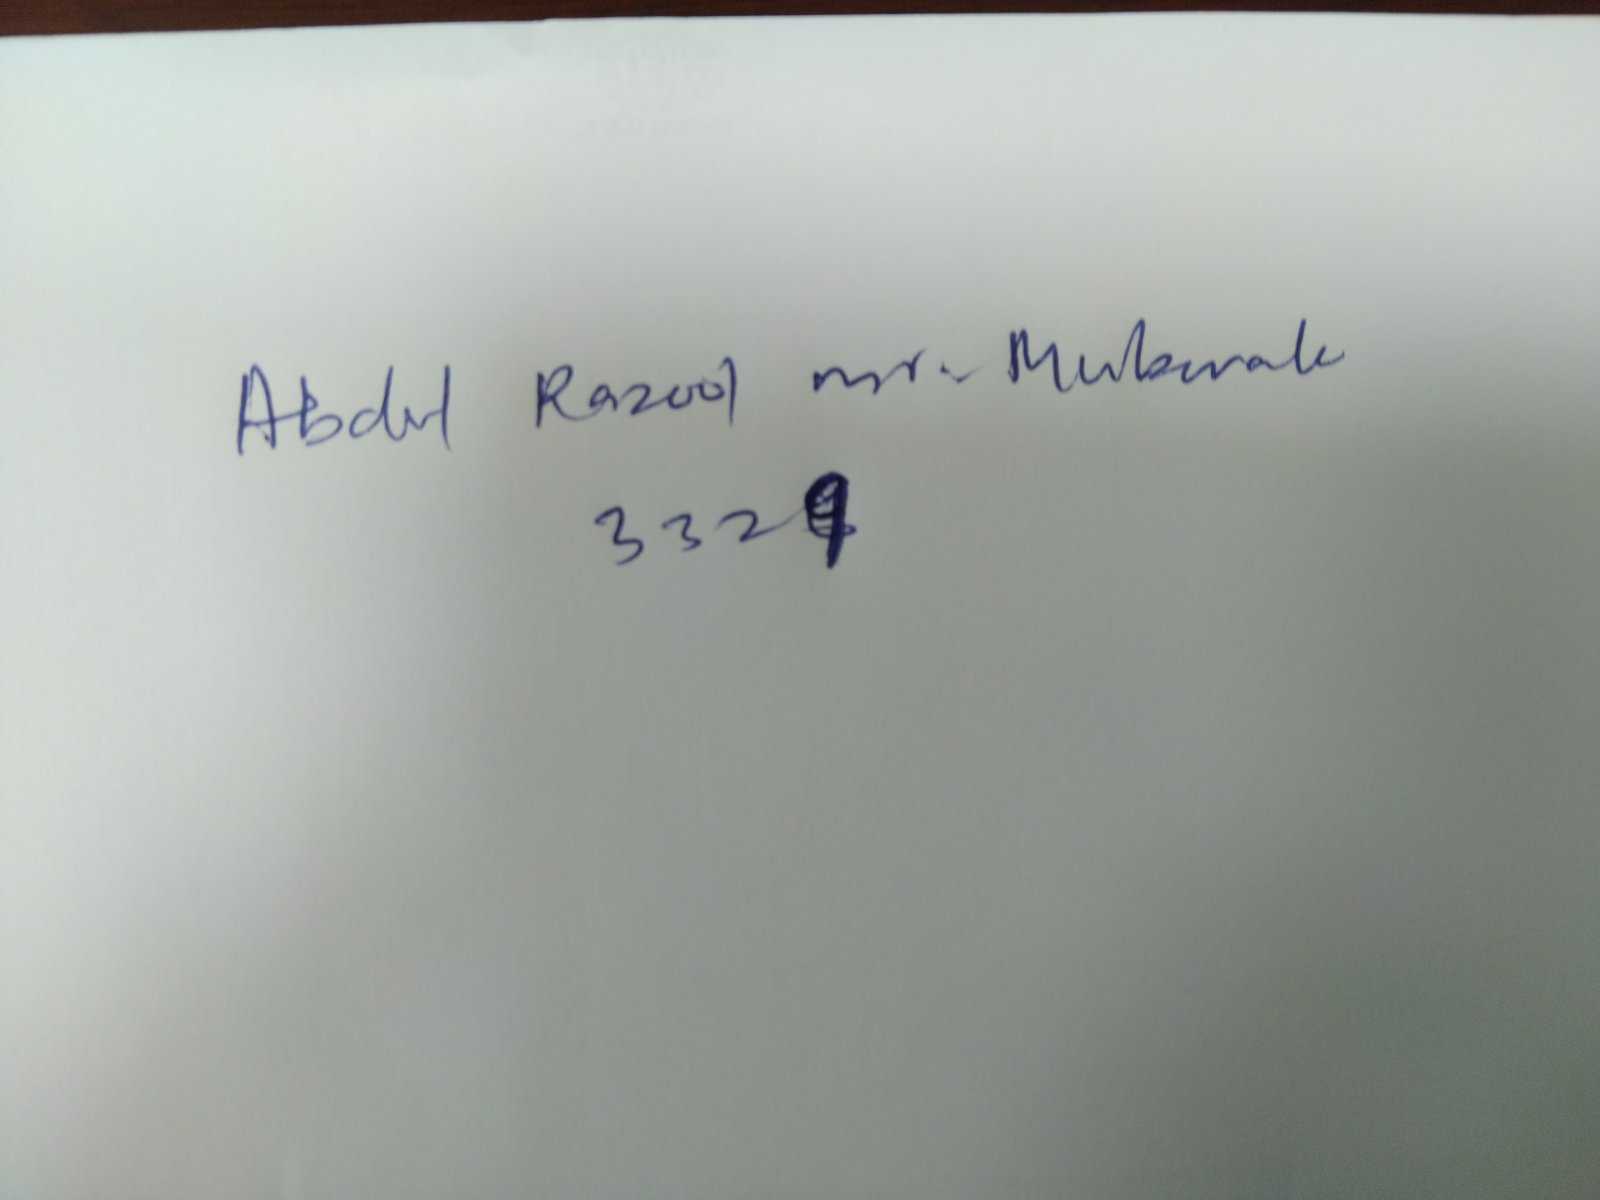 Abdul Razool mr. Mubarak
3329